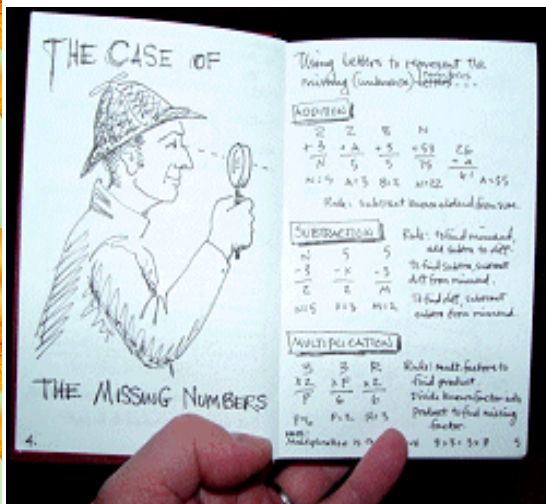 THE CASE OF
THE MISSING NUMBERS
4.
Using letters to represent the
missing (unknown) numbers letters...
ADDITION
2 2 B N
+3 +A +3 +53 26
N 5 5 75 +A
N=5 A=3 B=2 N=22 61 A=35
Rule: subtract known addend from sum.
SUBTRACTION
Rule: To find minuend,
add subtra to diff.
N 5 5
-3 -X -3
2 2 M
N=5 X=3 M=2
To find subtra, subtract
diff from minuend.
To find diff, subtract
subtra from minuend.
MULTIPLICATION
3 3 R
x2 xF x2
P 6 6
P=6 F=2 R=3
Rule: mult. factors to
find product.
Divide known factor into
product to find missing
factor.
Multiplication is
5